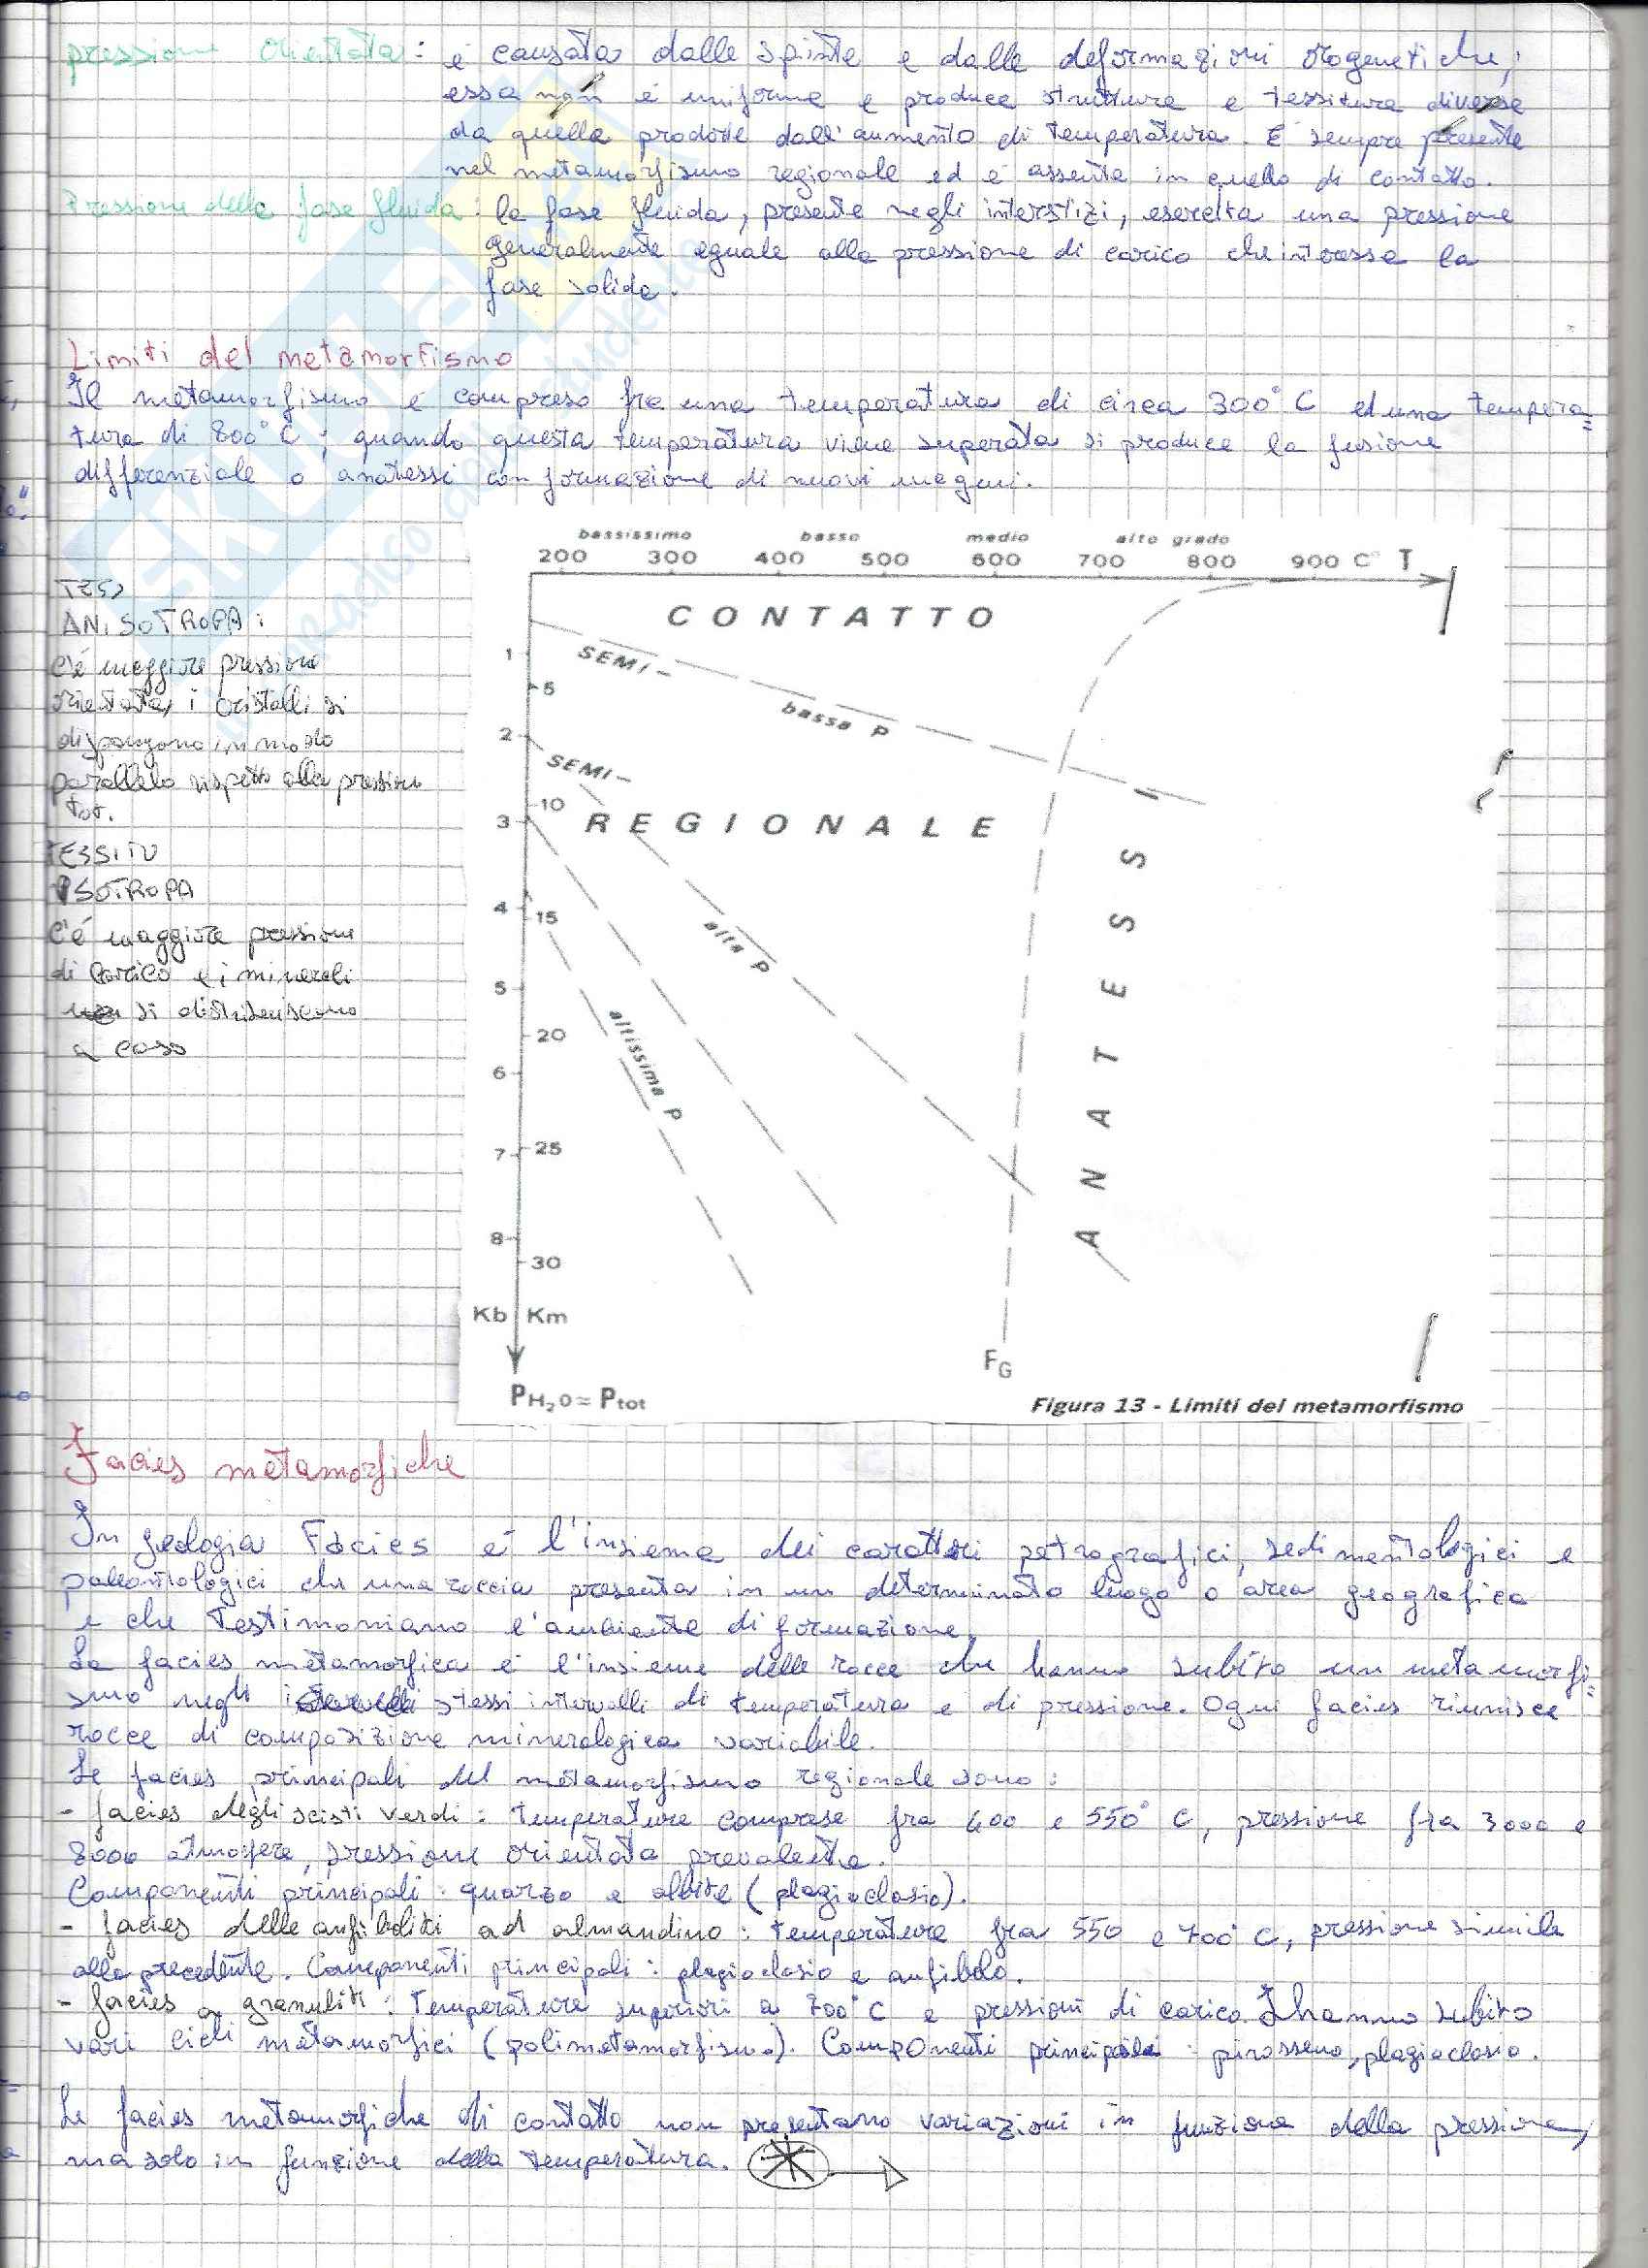 pressione orientata: è causata dalle spinte e dalle deformazioni orogenetiche;
essa non è uniforme e produce strutture e tessitura diverse
da quelle prodotte dall'aumento di temperatura. È sempre presente
nel metamorfismo regionale ed è assente in quello di contatto.
Pressione della fase fluida: la fase fluida, presente negli interstizi, esercita una pressione
generalmente eguale alla pressione di carico che interessa la
fase solida.
Limiti del metamorfismo
Il metamorfismo è compreso fra una temperatura di circa 300°C ed una tempera=
tura di 800°C; quando questa temperatura viene superata si produce la fusione
differenziale o anatessi con formazione di nuovi magmi.
bassissimo basso medio alto grado
200 300 400 500 600 700 800 900 C° T
CONTATTO
SEMI-
bassa P
SEMI-
REGIONALE
alta P
altissima P
ANATESSI
1
2
3
4
5
6
7
8
5
10
15
20
25
30
Kb Km
PH2O = Ptot
FG
Figura 13 - Limiti del metamorfismo
TESS
ANISOTROPA:
c'è maggiore pressione
orientata, i cristalli si
dispongono in modo
parallelo rispetto alla pressione
tot.
TESSITU
ISOTROPA
C'è maggiore pressione
di carico e i minerali
si distribuiscono
a caso
Facies metamorfiche
In geologia Facies è l'insieme dei caratteri petrografici, sedimentologici e
paleontologici che una roccia presenta in un determinato luogo o area geografica
e che testimoniano l'ambiente di formazione.
La facies metamorfica è l'insieme delle rocce che hanno subito un metamorfi=
smo negli stessi intervalli di temperatura e di pressione. Ogni facies riunisce
rocce di composizione mineralogica variabile.
Le facies principali del metamorfismo regionale sono:
- facies degli scisti verdi: temperature comprese fra 400 e 550° C, pressione fra 3000 e
8000 atmosfere, pressione orientata prevalente.
Componenti principali: quarzo e albite (plagioclasio).
- facies delle anfiboliti ad almandino: temperature fra 550 e 700° C, pressione simile
alla precedente. Componenti principali: plagioclasio e anfibolo.
- facies a granuliti: temperature superiori a 700°C e pressioni di carico. hanno subito
vari cicli metamorfici (polimetamorfismo). Componenti principali: pirosseno, plagioclasio.
Le facies metamorfiche di contatto non presentano variazioni in funzione della pressione,
ma solo in funzione della temperatura.